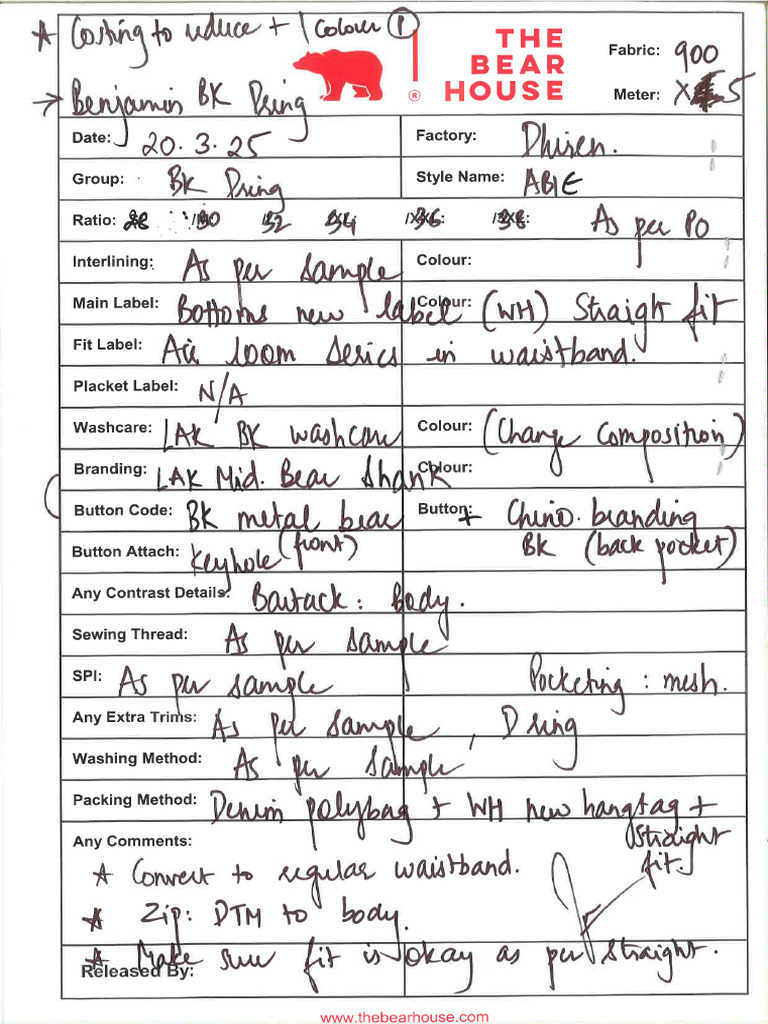 * Costing to reduce + 1 Colour ①
THE BEAR HOUSE
®
Fabric: 900
→ Benjamin BK Dring
Meter: X 5
Date: 20.3.25 Factory: Dhiren.
Group: BK Dring Style Name: ABIE
Ratio: 28 30 32 34 36 38 As per PO
Interlining: As per sample Colour:
Main Label: Bottoms new label Colour: (WH) Straigh fit
Fit Label: Air loom series in waistband.
Placket Label: N/A
Washcare: LAK BK washcare Colour: (Change Composition)
Branding: LAK Mid. Bear Shank Colour:
Button Code: BK metal bear Button: + Chino branding
Button Attach: Keyhole (front) BK (back pocket)
Any Contrast Details: Bartack: Body.
Sewing Thread: As per sample
SPI: As per sample Pocketing: mesh.
Any Extra Trims: As per sample, Dring
Washing Method: As per sample
Packing Method: Denim polybag + WH new hangtag +
straight fit.
Any Comments:
* Convert to regular waistband.
* Zip: DTM to body.
* Make sure fit is okay as per straight.
Released By:
www.thebearhouse.com